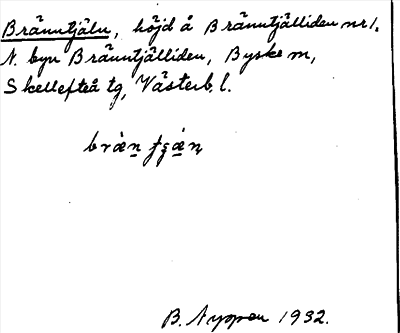 Bränntjäln, höjd å Bränntjälliden nr 1.
N. byn Bränntjälliden, Byske sn,
Skellefteå tg, Västerb. l.
B. Nyppen 1932.